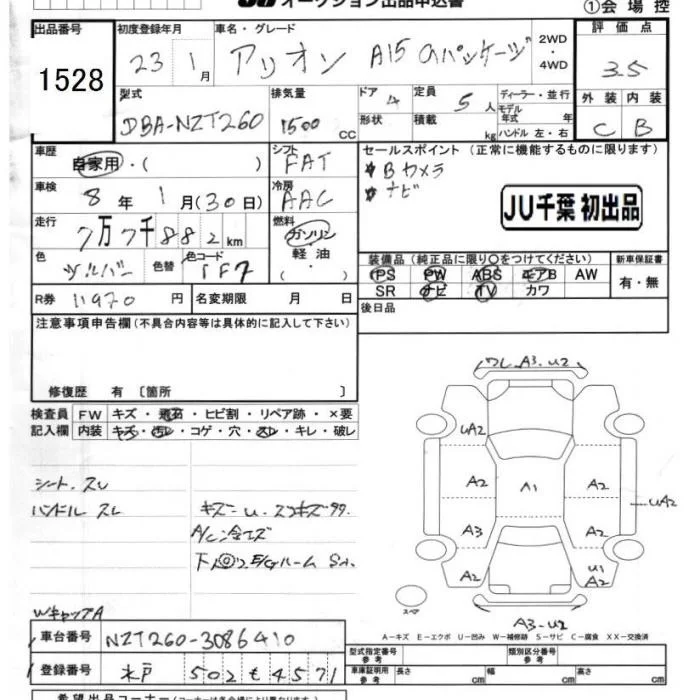 オークション出品申込書
①会場控
出品番号 初度登録年月 車名・グレード 2WD・4WD 評価点
1528 23 1月 アリオン A15 Gパッケージ 3.5
型式 排気量 ドア 4 定員 5人 ディーラー・並行 外装 内装
DBA-NZT260 1500 CC 形状 積載 kg モデル年式 年 ハンドル 左・右 C B
車歴 自家用・( ) シフト FAT セールスポイント (正常に機能するものに限ります)
車検 8年 1月(30日) 冷房 AAC * Bカメラ
* ナビ
JU千葉 初出品
走行 7万7千882km 燃料 ガソリン 軽油 ( ・ )
色 シルバー 色替 色コード 1F7
装備品 (純正品に限り○をつけてください) 新車保証書
PS PW ABS エアB AW 有・無
SR ナビ TV カワ
R券 11970円 名変期限 月 日 後日品
注意事項申告欄(不具合内容等は具体的に記入して下さい)
修復歴 有 〔箇所 〕
検査員 FW キズ・飛石・ヒビ割・リペア跡・×要
記入欄 内装 キズ・汚レ・コゲ・穴・スレ・キレ・破レ
ワレ A3.U2
UA2
A2 A1 A2
UA2
A3 A2
A2 U1 A2
A3-U2
スペア
シート.スレ
ハンドル スレ キズ=U.スリキズ
A/C冷
E/Gルーム SA.
WキャップA
A−キズ E−エクボ U−凹み W−補修跡 S−サビ C−腐食 XX−交換済
車台番号 NZT260-3086410
型式指定番号 参考 類別区分番号 参考
登録番号 水戸 502 も 4571
車庫証明用 参考 長さ cm 幅 cm 高さ cm
希望出品コーナー